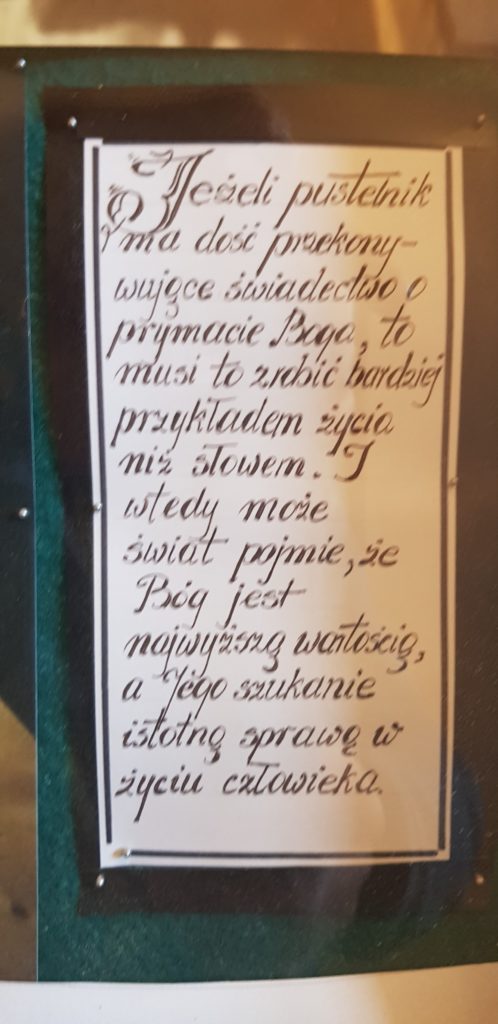 Jeżeli pustelnik
ma dość przekony-
wujące świadectwo o
prymacie Boga, to
musi to zrobić bardziej
przykładem życia
niż słowem. I
wtedy może
świat pojmie, że
Bóg jest
najwyższą wartością,
a Jego szukanie
istotną sprawą w
życiu człowieka.